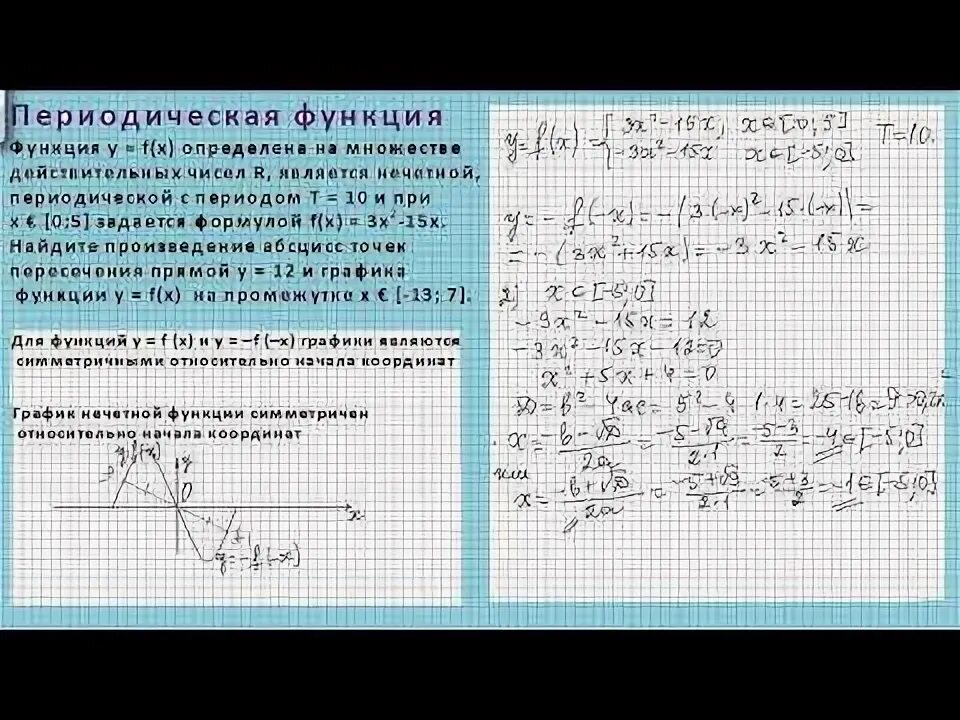 Периодическая функция
Функция y = f(x) определена на множестве
действительных чисел R, является нечетной,
периодической с периодом T = 10 и при
x € [0;5] задается формулой f(x) = 3x²-15x.
Найдите произведение абсцисс точек
пересечения прямой y = 12 и графика
функции y = f(x) на промежутке x € [-13; 7].
Для функций y = f (x) и y = –f (–x) графики являются
симметричными относительно начала координат
График нечетной функции симметричен
относительно начала координат
y=f(x)
y
0
x
y=-f(-x)
y=f(x)={3x²-15x, x∈[0;5] T=10.
{-3x²-15x x∈[-5;0]
y=-f(-x)=-(3·(-x)²-15·(-x))=
=-(3x²+15x)=-3x²-15x
2) x∈[-5;0]
-3x²-15x=12
-3x²-15x-12=0
x²+5x+4=0
D=b²-4ac=5²-4·1·4=25-16=9>0, 2к.
x=(-b-√D)/2a=(-5-√9)/2·1=(-5-3)/2=-4∈[-5;0]
или
x=(-b+√D)/2a=(-5+√9)/2·1=(-5+3)/2=-1∈[-5;0]